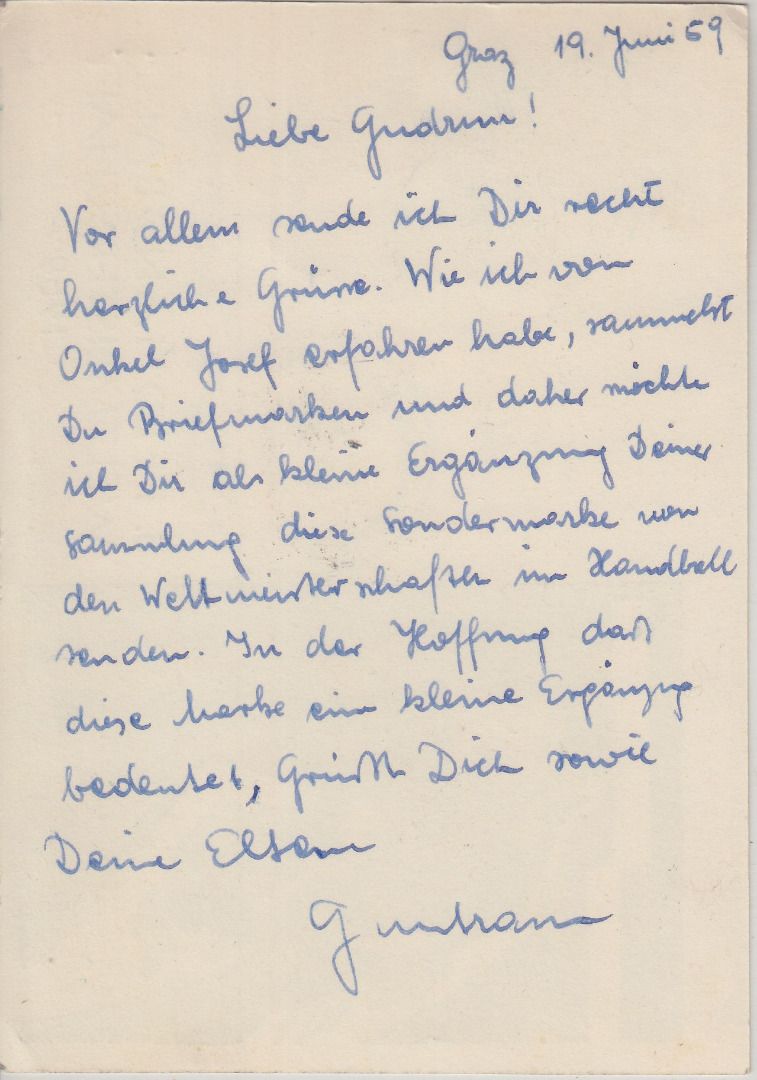 Graz 19. Juni 59
Liebe Gudrun!
Vor allem sende ich Dir recht
herzliche Grüsse. Wie ich von
Onkel Josef erfahren habe, sammelst
Du Briefmarken und daher möchte
ich Dir als kleine Ergänzung Deiner
Sammlung diese Sondermarke von
den Weltmeisterschaften im Handball
senden. In der Hoffnung dass
diese Marke eine kleine Ergänzung
bedeutet, Grüßt Dich sowie
Deine Eltern
Guntram